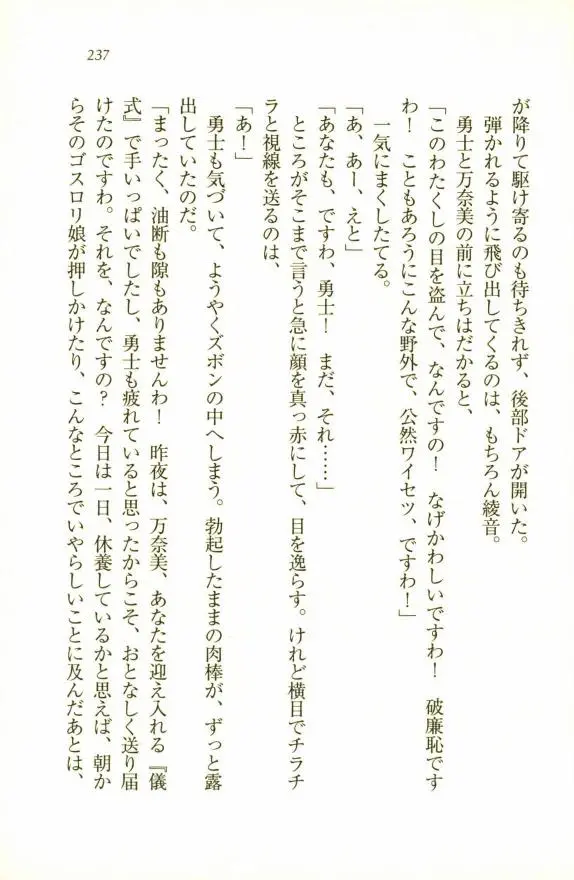 237
が降りて駆け寄るのも待ちきれず、後部ドアが開いた。
弾かれるように飛び出してくるのは、もちろん綾音。
勇士と万奈美の前に立ちはだかると、
「このわたくしの目を盗んで、なんですの！　なげかわしいですわ！　破廉恥です
わ！　こともあろうにこんな野外で、公然ワイセツ、ですわ！」
一気にまくしたてる。
「あ、あー、えと」
「あなたも、ですわ、勇士！　まだ、それ……」
ところがそこまで言うと急に顔を真っ赤にして、目を逸らす。けれど横目でチラチ
ラと視線を送るのは、
「あ！」
勇士も気づいて、ようやくズボンの中へしまう。勃起したままの肉棒が、ずっと露
出していたのだ。
「まったく、油断も隙もありませんわ！　昨夜は、万奈美、あなたを迎え入れる『儀
式』で手いっぱいでしたし、勇士も疲れていると思ったからこそ、おとなしく送り届
けたのですわ。それを、なんですの？　今日は一日、休養しているかと思えば、朝か
らそのゴスロリ娘が押しかけたり、こんなところでいやらしいことに及んだあとは、